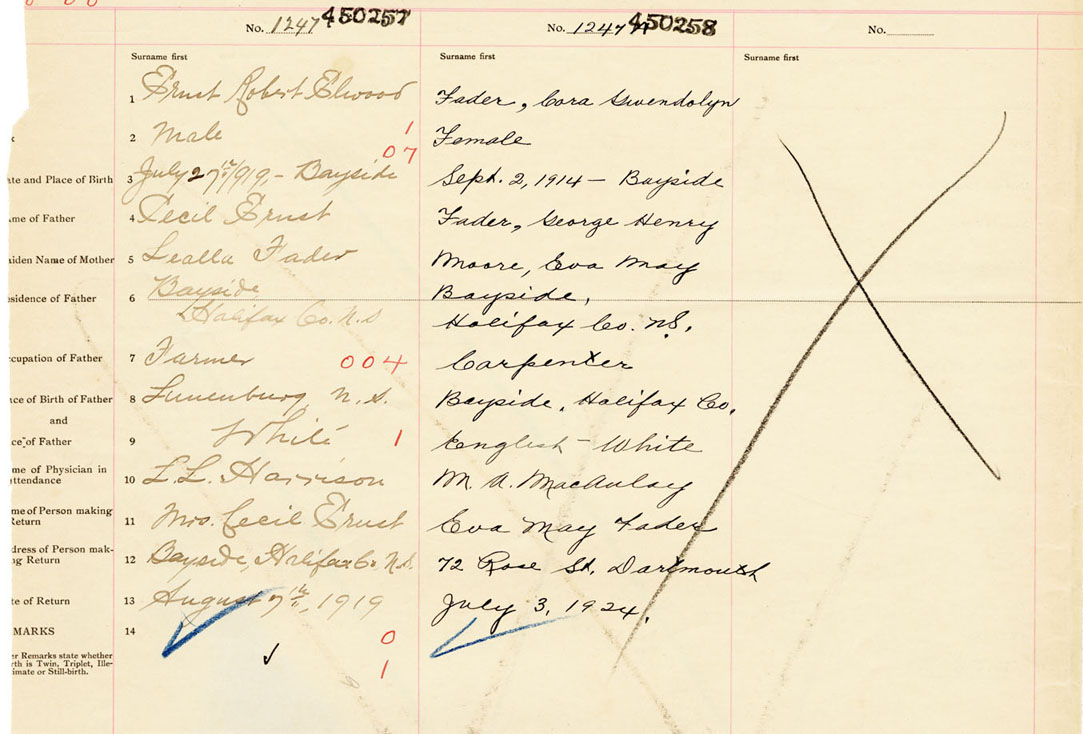 No. 1247 450257
No. 1247 A 450258
No.
Surname first
Surname first
Surname first
1 Ernst Robert Elwood
Fader, Cora Gwendolyn
2 Male 1
Female
07
ate and Place of Birth 3 July 27th/1919, - Bayside
Sept. 2, 1914 - Bayside
me of Father 4 Cecil Ernst
Fader, George Henry
aiden Name of Mother 5 Lealla Fader
Moore, Eva May
esidence of Father 6 Bayside
Halifax Co. N.S
Bayside,
Halifax Co. N.S.
ccupation of Father 7 Farmer 004
Carpenter
ace of Birth of Father 8 Lunenburg N.S.
Bayside, Halifax Co.
and
ce of Father 9 White 1
English - White
me of Physician in
ttendance 10 L.L. Harrison
M. A. MacAulay
me of Person making
Return 11 Mrs. Cecil Ernst
Eva May Fader
dress of Person mak-
ng Return 12 Bayside, Halifax Co N.S.
72 Rose St. Dartmouth
te of Return 13 August 7th, 1919
July 3, 1924.
MARKS 14
0
er Remarks state whether
rth is Twin, Triplet, Ille-
imate or Still-birth.
1